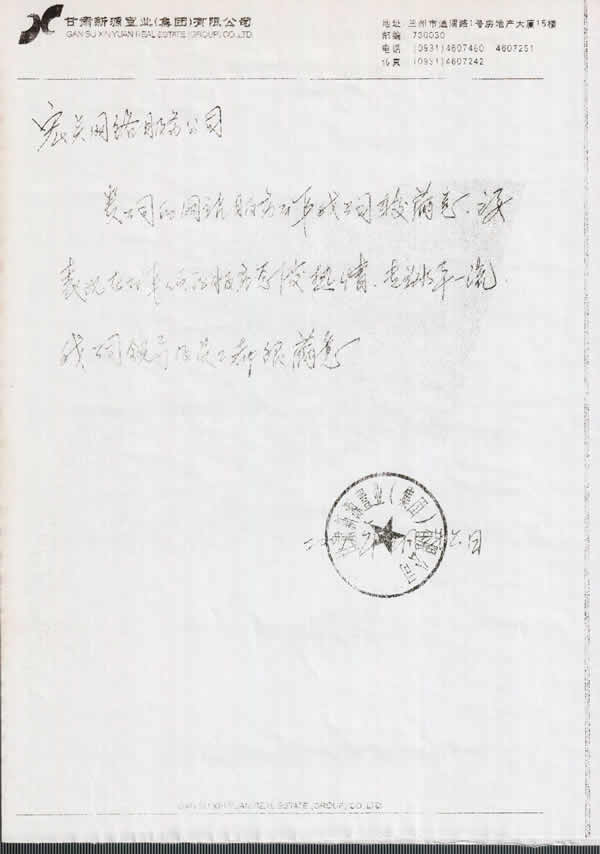 甘肃新源置业(集团)有限公司
GAN SU XIN YUAN REAL ESTATE (GROUP) CO.,LTD.
地址 兰州市通渭路1号房地产大厦15楼
邮编 730030
电话 (0931)4607460 4607251
传真 (0931)4607242
网络服务公司
贵公司的网络服务 我公司较满意.
表现在 热情. 专业水平一流.
我公司领导 员工都很满意
甘肃新源置业(集团)有限公司
GAN SU XIN YUAN REAL ESTATE (GROUP) CO.,LTD.